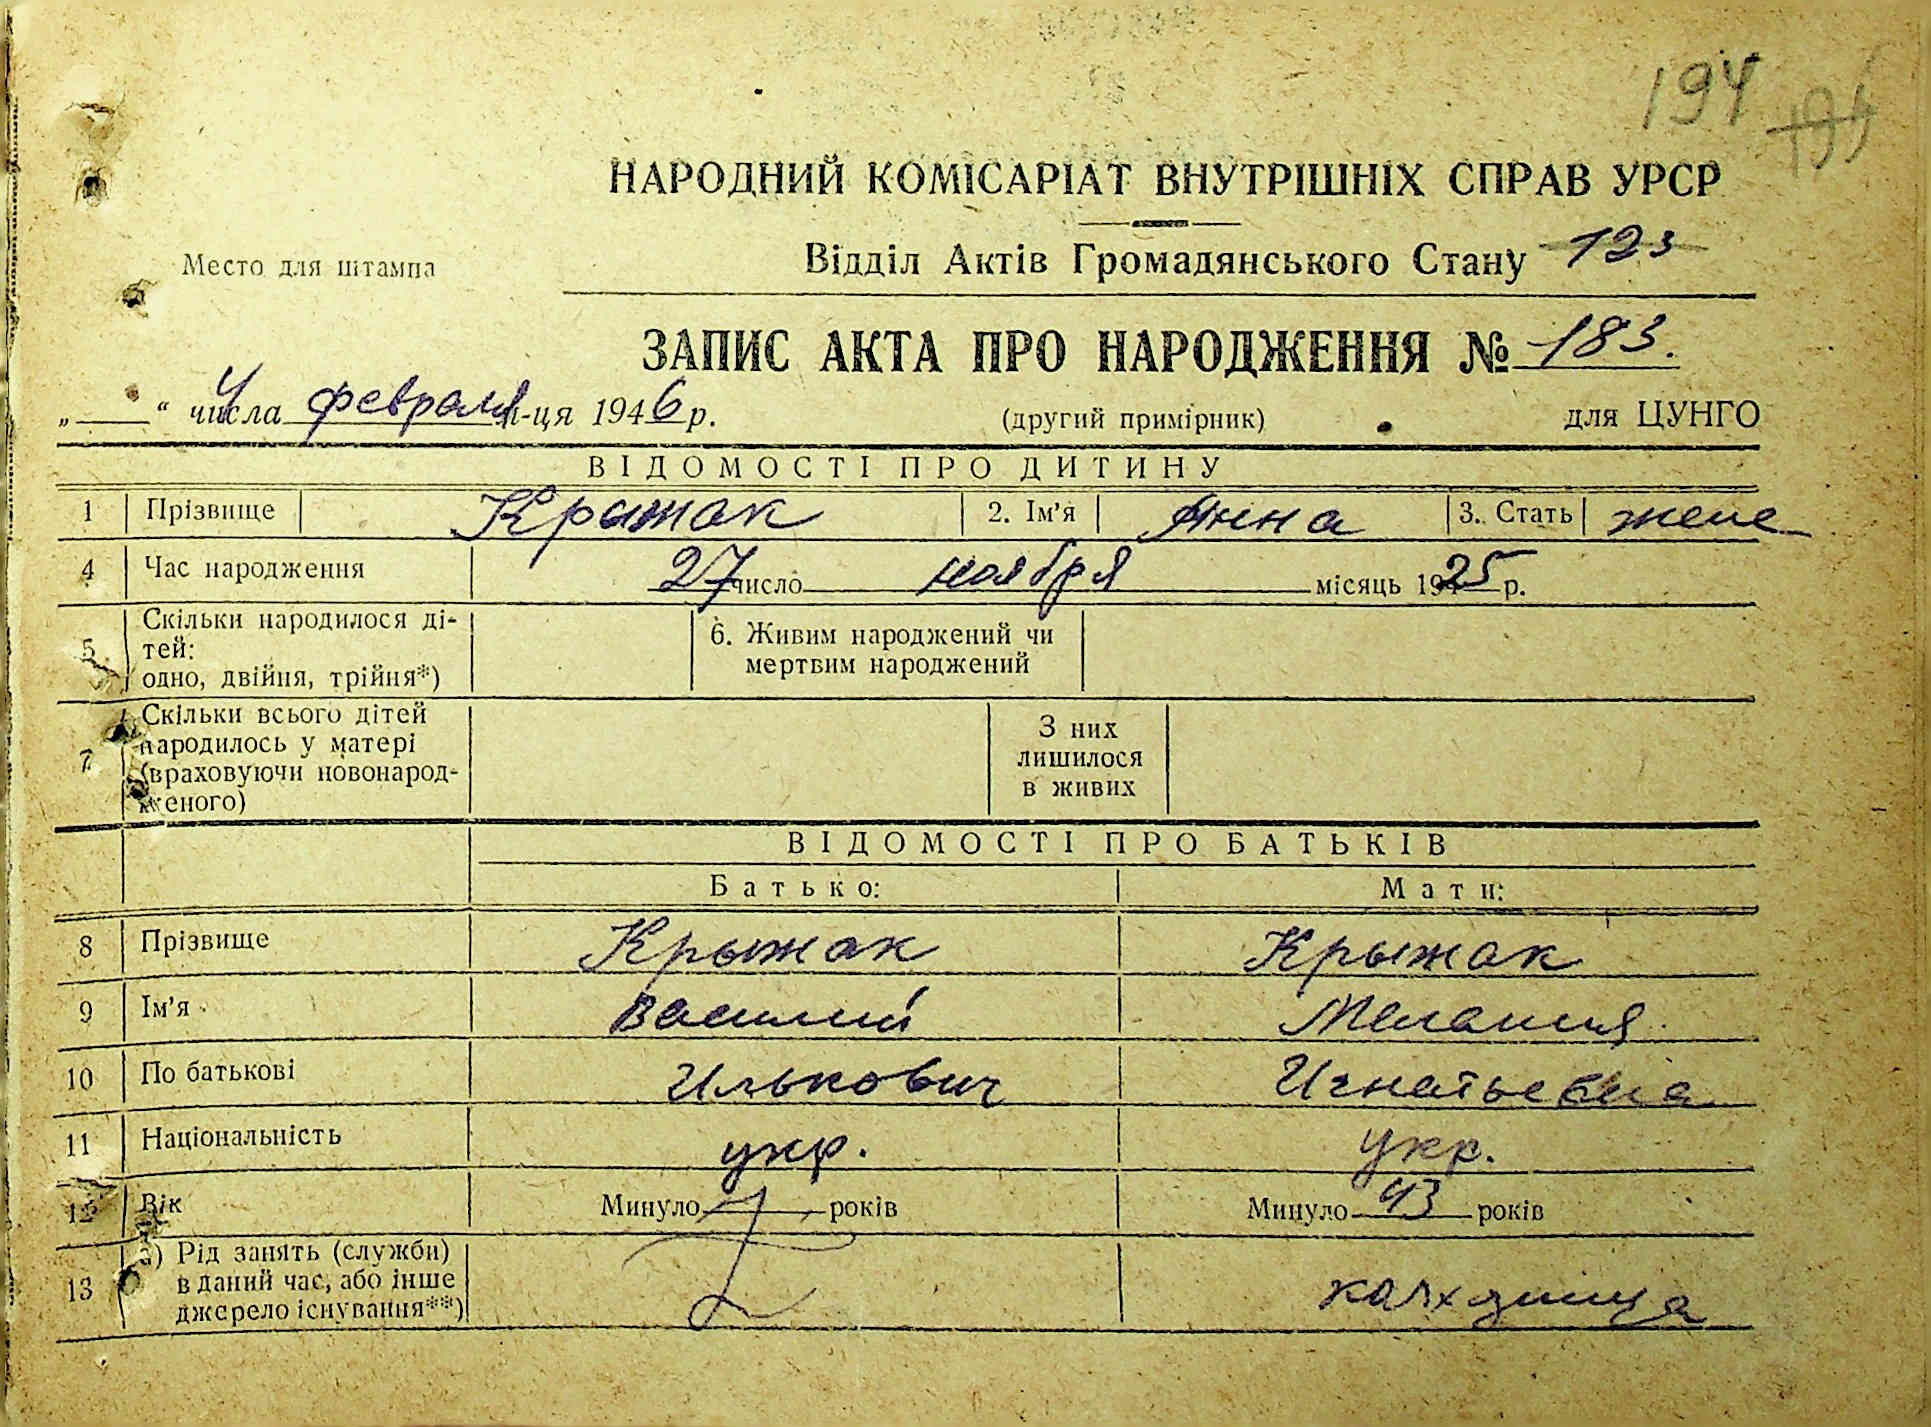 194 195
НАРОДНИЙ КОМІСАРІАТ ВНУТРІШНІХ СПРАВ УРСР
Место для штампа
Відділ Актів Громадянського Стану 123
ЗАПИС АКТА ПРО НАРОДЖЕННЯ № 183.
„ “ 4 числа февраля м-ця 1946 р. (другий примірник) для ЦУНГО
ВІДОМОСТІ ПРО ДИТИНУ
1 Прізвище Крыжак 2. Ім'я Анна 3. Стать жене
4 Час народження 27 число ноября місяць 1925 р.
5 Скільки народилося ді-
тей:
одно, двійня, трійня*)
6. Живим народжений чи
мертвим народжений
7 Скільки всього дітей
народилось у матері
(враховуючи новонарод-
женого)
З них
лишилося
в живих
ВІДОМОСТІ ПРО БАТЬКІВ
Батько: Мати:
8 Прізвище Крыжак Крыжак
9 Ім'я Василий Мелания
10 По батькові Илькович Игнатьевна
11 Національність укр. укр.
12 Вік Минуло років Минуло 43 років
13 а) Рід занять (служби)
в даний час, або інше
джерело існування**)
колхозница